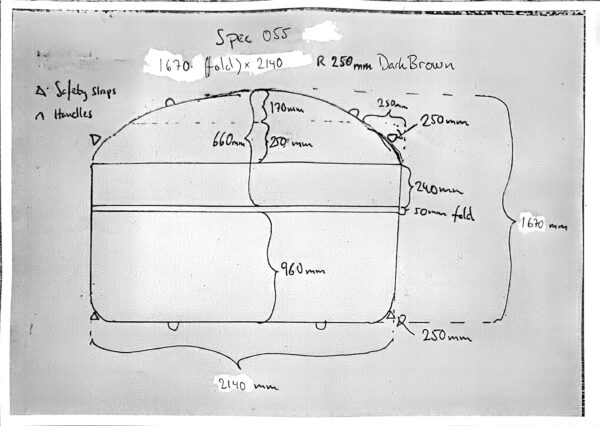 Spec 055
1670 (fold) x 2140 R 250mm Dark Brown
Safety straps
Handles
250mm
170mm
250mm
660mm
250 mm
240mm
50mm fold
1670 mm
960mm
250mm
2140 mm